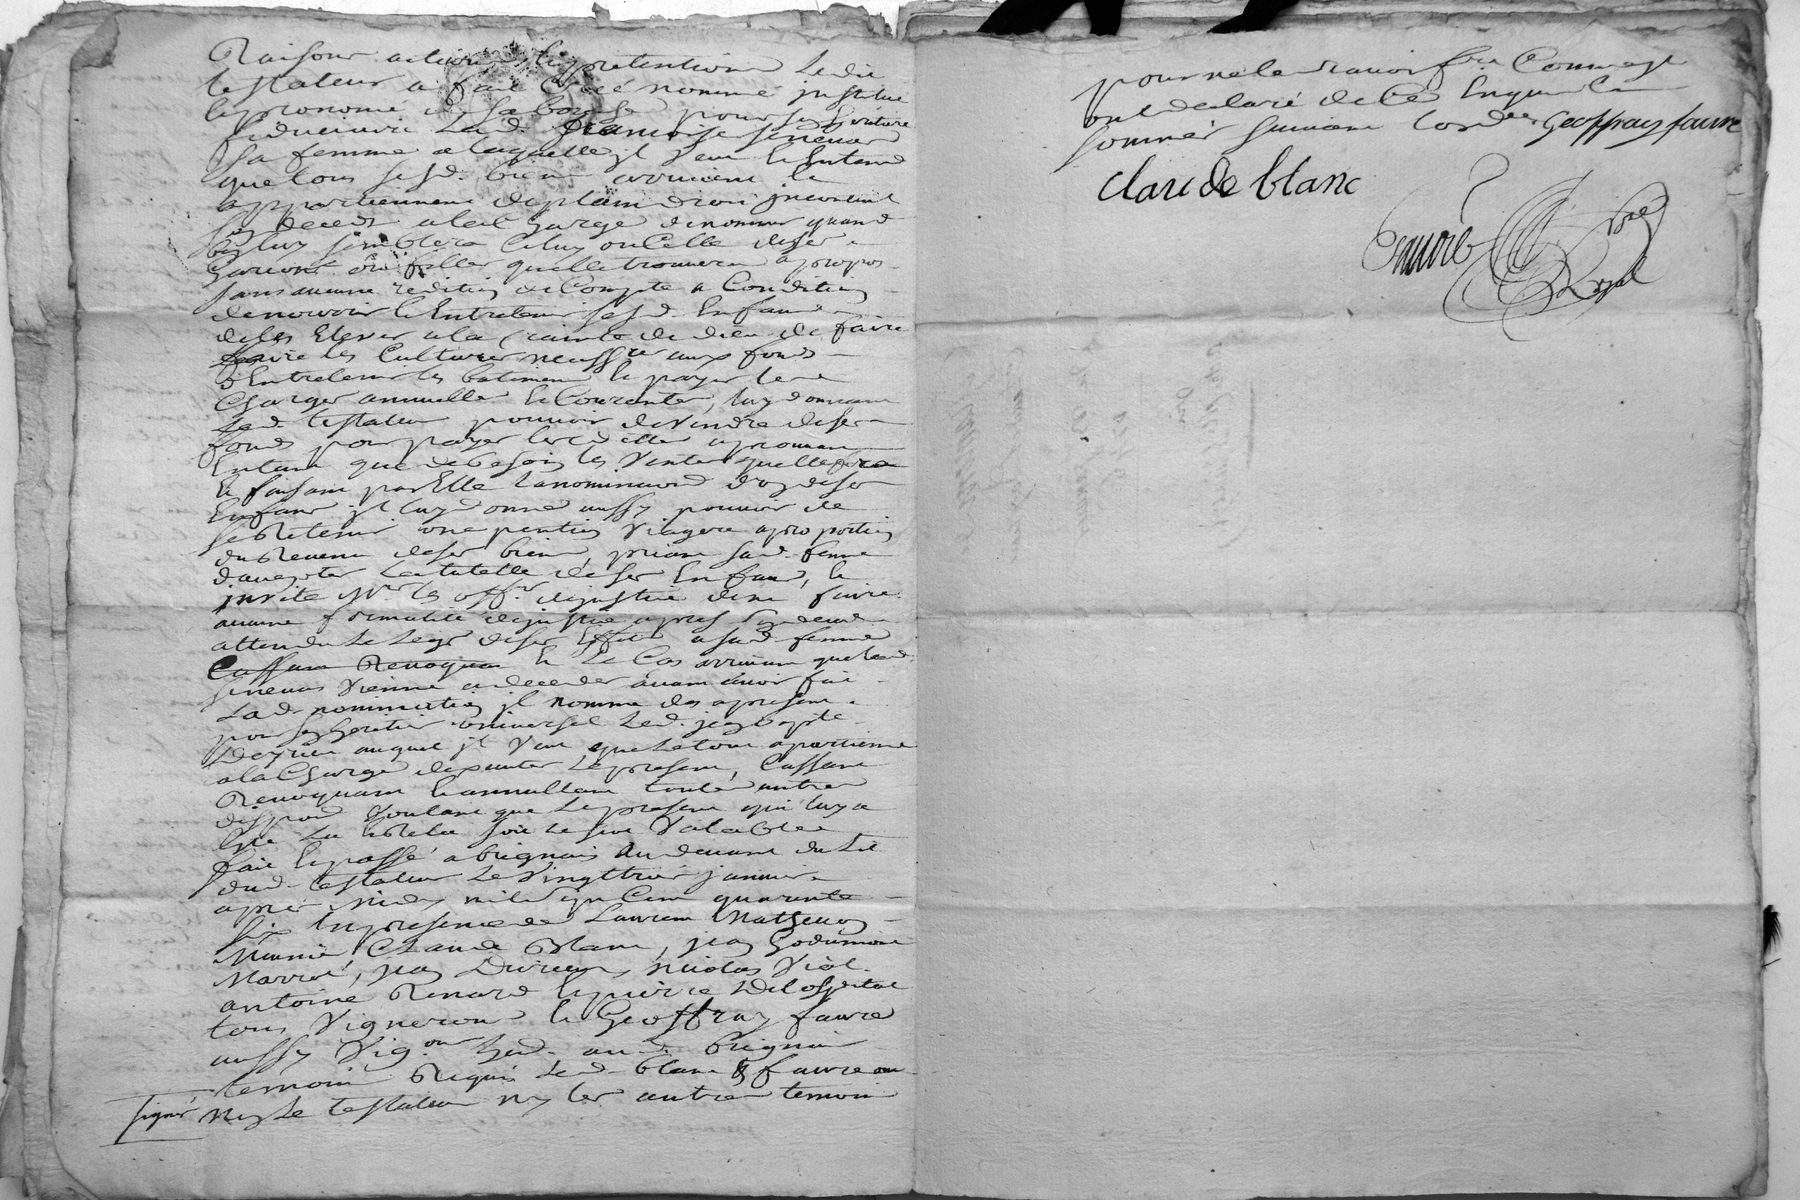 Raisons actions et pretentions Ledit
testateur a fait Créé nommé jnstitué
et prononcé de sa bouche pour ses heritiere
fiduciaire Lad. francoise
Sa femme a laquelle jl veut et Entend
que tous sesd. biens arrivent et
appartiennent de plain droit jncontinent
son deceds a la Charge de nommer quand
bon luy semblera Celuy ou Celle de ses
garcons ou filles quelle trouvera apropos
sans aucune reddition de Compte a Condition
de nourrir et Entretenir sesd. Enfans
de les Elever a la Crainte de dieu de faire
faire les Cultures necess.res aux fonds
d'Entretenir les batimens et payer les
Charges annuelles et Courantes, luy donnant
led. testateur pouvoir de Vendre de ses
fonds pour payer les dettes aprouvant
Entant que de besoin les Ventes quelle fera
Et faisant par Elle la nomination d'un de ses
Enfans jl luy donne aussy pouvoir de
se Retenir une pention Viagere aproportion
du Revenu de ses biens, priant sad. femme
d'accepter La tutelle de ses Enfans, et
jnvite Mrs les offrs de justice de ne faire
aucune formalité de justice apres son deceds
attendu Le Legs de ses Effets a sad. femme
Cassant Revoquant Et Le Cas arrivant que lad.
vienne a deceder avant davoir fait
Lad. nomination jl nomme des apresent
pour son heritier universel Led. jean bapte
auquel jl Veut que Le tout apartienne
a la Charge dexecuter Le present, Cassant
Revoquant et annullant toutes autres
dispons Voulant que Le present qui luy a
Eté Lu et Relu soit Le seul Valable
fait et passé a brignais au devant du Lit
dud. testateur Le Vingt trois janvier
apres Midy mil sept Cent quarante
six En presence de Laurent Mathevon
Claude Blanc, jean
jean nicolas Viol
antoine Renard et pierre Delhospital
tous Vignerons et Geoffray faure
aussy Vig.on hed. aud. brignais
temoins Requis Led. blanc & faure ont
signé Non Le testateur ny les autres temoins
pour ne le savoir fe. Comme jl
ont declaré de Ce Enquis Et
sommés suivant Lordce Geoffray faure
claude blanc
Royal